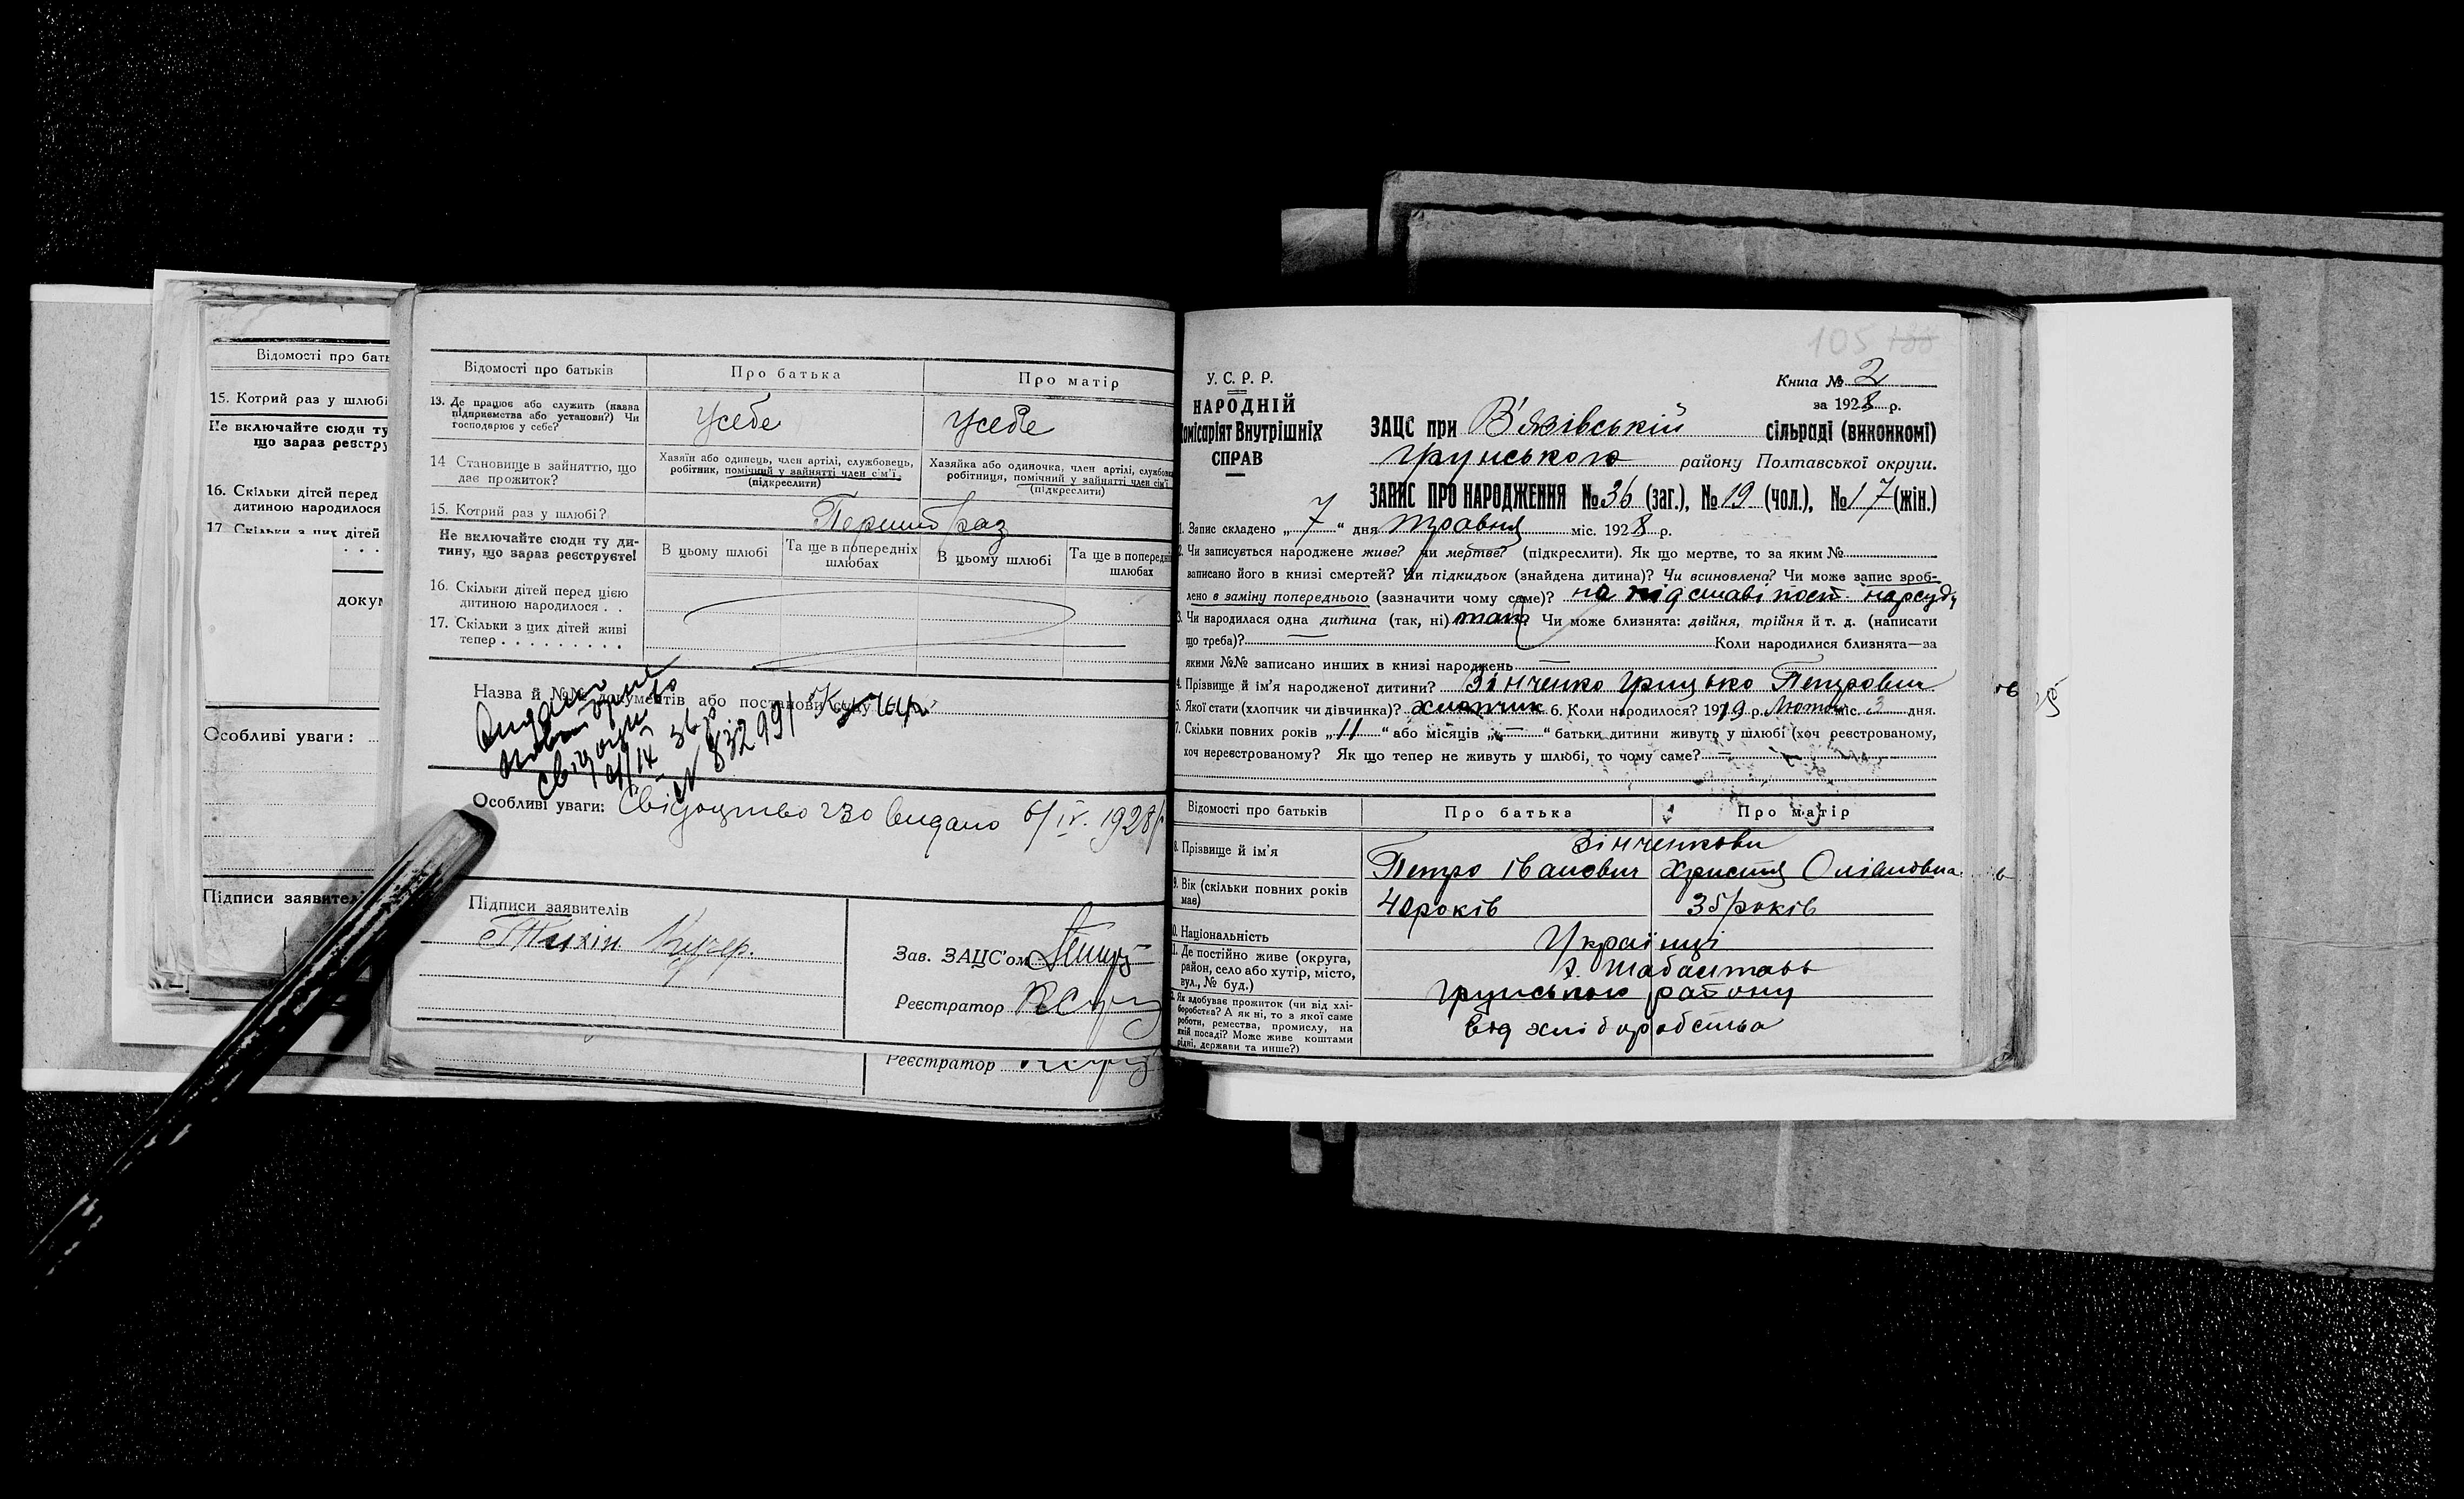 Відомості про бать
15. Котрий раз у шлюбі
Не включайте сюди ту
що зараз реєстру
16. Скільки дітей перед
дитиною народилося
17. Скільки з цих дітей
. . .
докум
Особливі уваги:
Підписи заявител
Відомості про батьків
Про батька
Про матір
13. Де працює або служить (назва
підприємства або установи?) Чи
господарює у себе?
Усебе
Усебе
14 Становище в зайняттю, що
дає прожиток?
Хазяїн або одинець, член артілі, службовець,
робітник, помічний у зайнятті член сім'ї
(підкреслити)
Хазяйка або одиночка, член артілі, службов
робітниця, помічний у зайнятті член сім'ї
(підкреслити)
15. Котрий раз у шлюбі?
Перший раз
Не включайте сюди ту ди-
тину, що зараз реєструєте!
В цьому шлюбі
Та ще в попередніх
шлюбах
В цьому шлюбі
Та ще в поперед
шлюбах
16. Скільки дітей перед цією
дитиною народилося . .
17. Скільки з цих дітей живі
тепер . . . . . . . . .
Назва й №№ документів або постанови суду
Видано
свідоцтво
№ 832991 Кучер
Особливі уваги: Свідоцтво 230 видано 6/IV. 1928р
Підписи заявителів
Тихін Кучер.
Зав. ЗАЦС'ом
Реєстратор
Реєстратор
105 188
У. С. Р. Р.
НАРОДНІЙ
Комісаріят Внутрішніх
СПРАВ
Книга № 2
за 1928 р.
ЗАЦС при В'язівській сільраді (виконкомі)
Грунського району Полтавської округи.
ЗАПИС ПРО НАРОДЖЕННЯ № 36 (заг.), № 19 (чол.), № 17 (жін.)
1. Запис складено „ 7 “ дня травня міс. 1928 р.
2. Чи записується народжене живе? чи мертве? (підкреслити). Як що мертве, то за яким №
записано його в книзі смертей? Чи підкидьок (знайдена дитина)? Чи всиновлена? Чи може запис зроб-
лено в заміну попереднього (зазначити чому саме)? на підставі пост. нарсуду
3. Чи народилася одна дитина (так, ні) так? Чи може близнята: двійня, трійня й т. д. (написати
що треба)? — Коли народилися близнята—за
якими №№ записано инших в книзі народжень —
4. Прізвище й ім'я народженої дитини? Зінченко Грицько Петрович
5. Якої стати (хлопчик чи дівчинка)? хлопчик 6. Коли народилося? 1919 р. Лютого міс. 3 дня.
7. Скільки повних років „ 11 “ або місяців „ — “ батьки дитини живуть у шлюбі (хоч реєстрованому,
хоч нереєстрованому? Як що тепер не живуть у шлюбі, то чому саме? —
Відомості про батьків
Про батька
Про матір
8. Прізвище й ім'я
Зінченкови
Петро Іванович
Христя Оліяновна
9. Вік (скільки повних років
має)
40 років
35 років
10. Національність
Українці
11. Де постійно живе (округа,
район, село або хутір, місто,
вул., № буд.)
Грунського району
12. Як здобуває прожиток (чи від хлі-
боробства? А як ні, то з якої саме
роботи, ремества, промислу, на
якій посаді? Може живе коштами
рідні, держави та инше?)
Від хліборобства